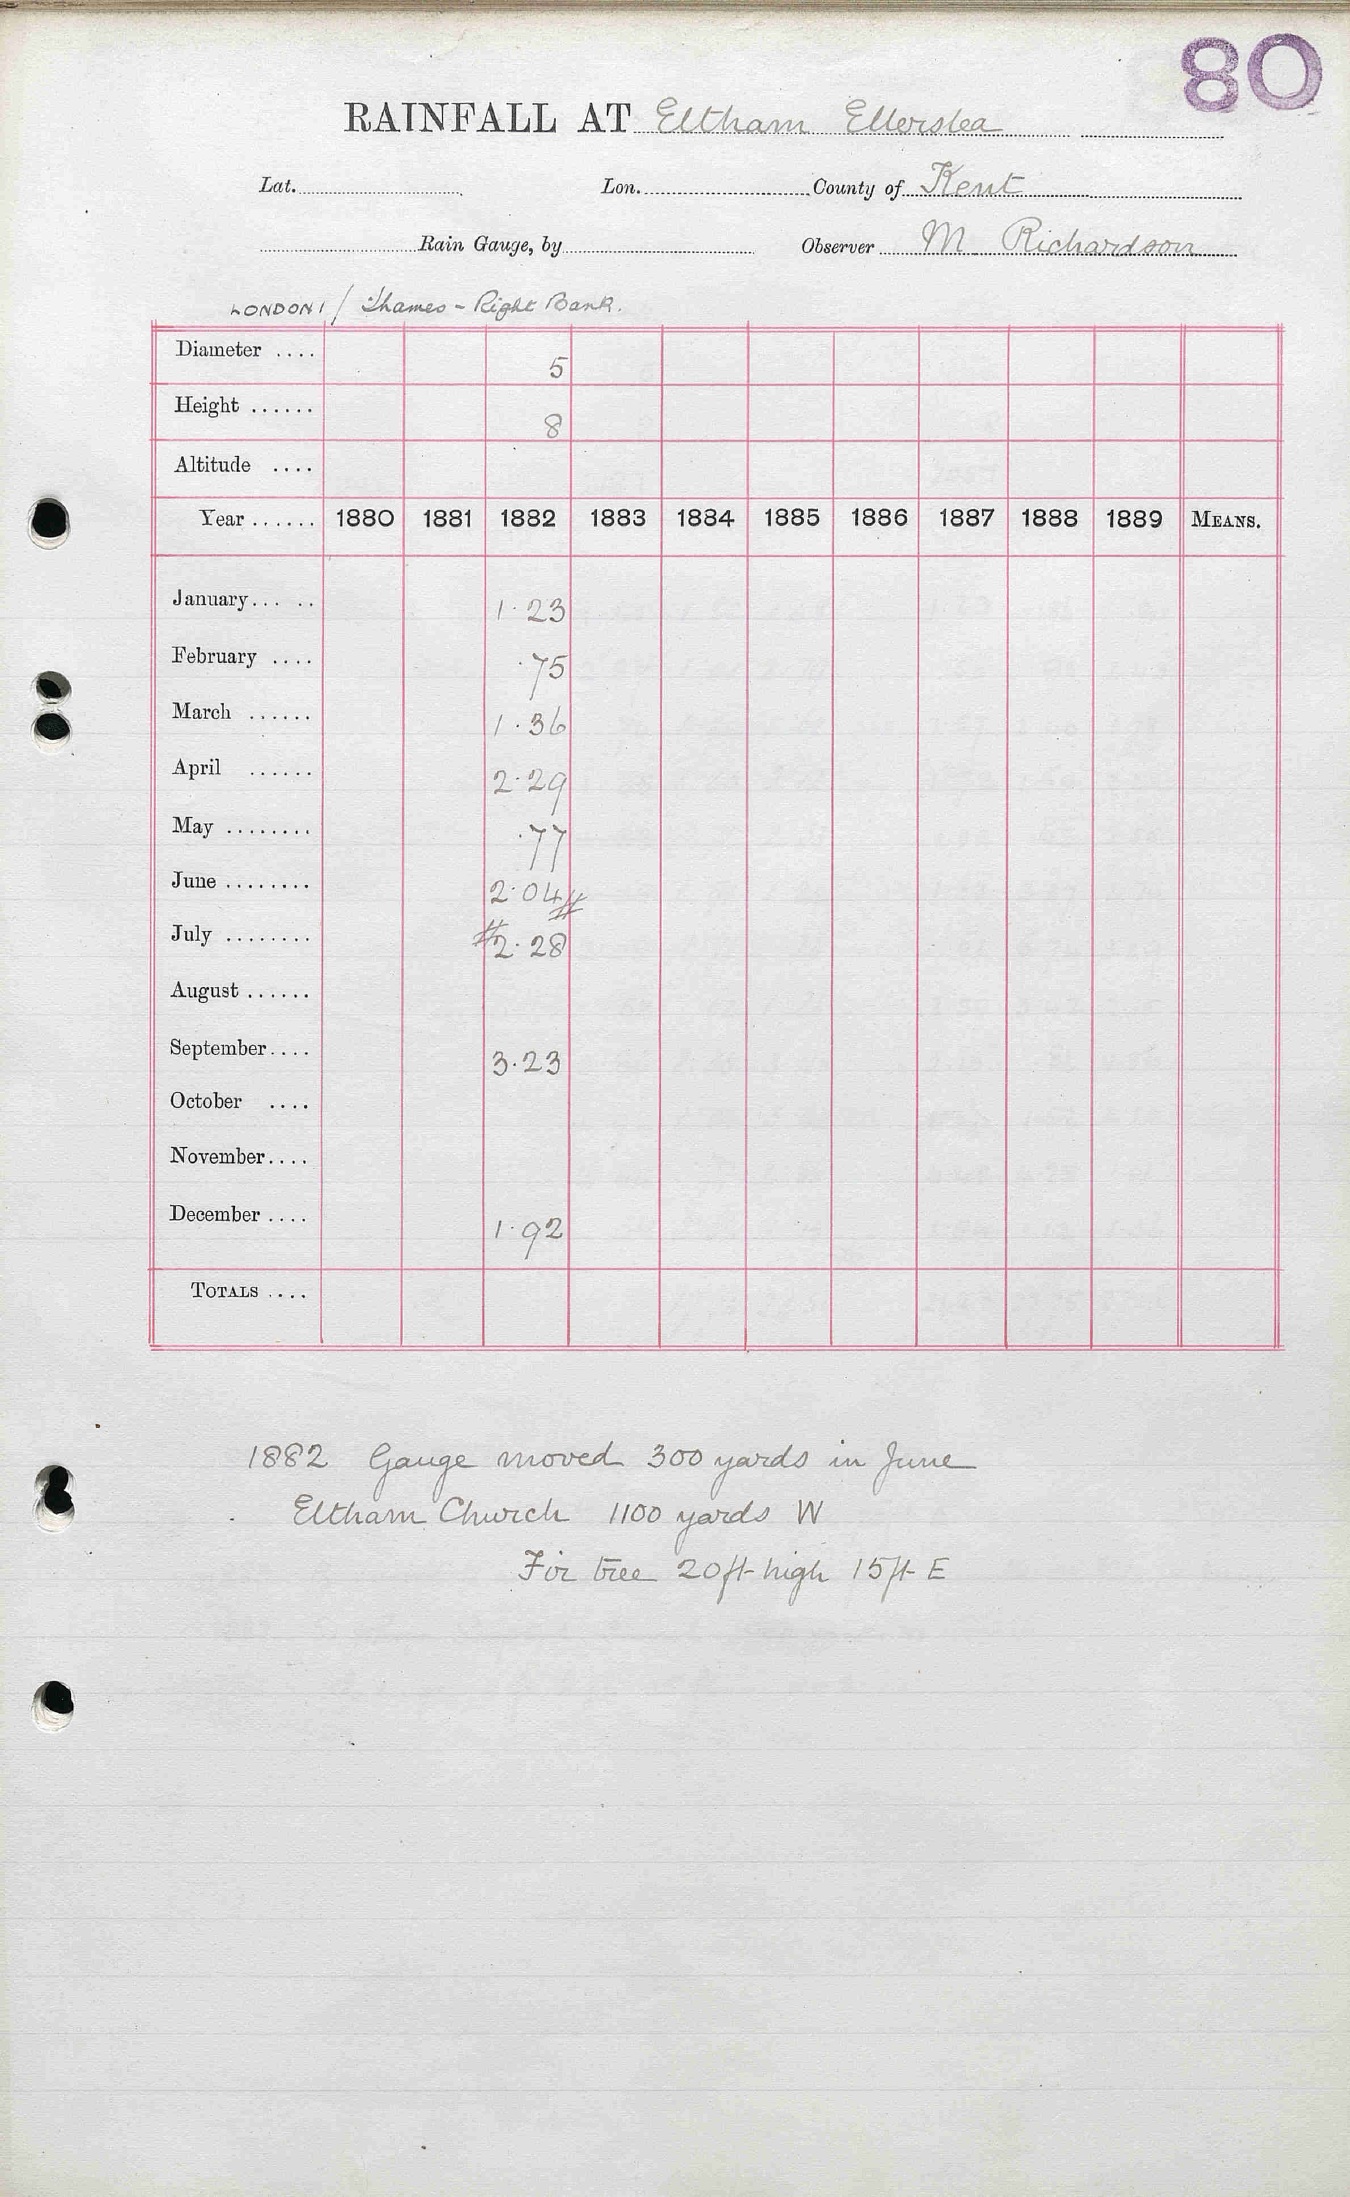 80
RAINFALL AT Eltham Ellerslea
Lat. Lon. County of Kent
Rain Gauge, by Observer M Richardson
LONDON 1 / Thames - Right Bank.
Diameter .... 5
Height ...... 8
Altitude ....
Year ...... 1880 1881 1882 1883 1884 1885 1886 1887 1888 1889 MEANS.
January... .. 1.23
February .... .75
March ...... 1.36
April ...... 2.29
May ........ .77
June ........ 2.04 #
July ........ # 2.28
August ......
September.... 3.23
October ....
November....
December .... 1.92
TOTALS ....
1882 Gauge moved 300 yards in June
Eltham Church 1100 yards W
Fir tree 20ft high 15ft E